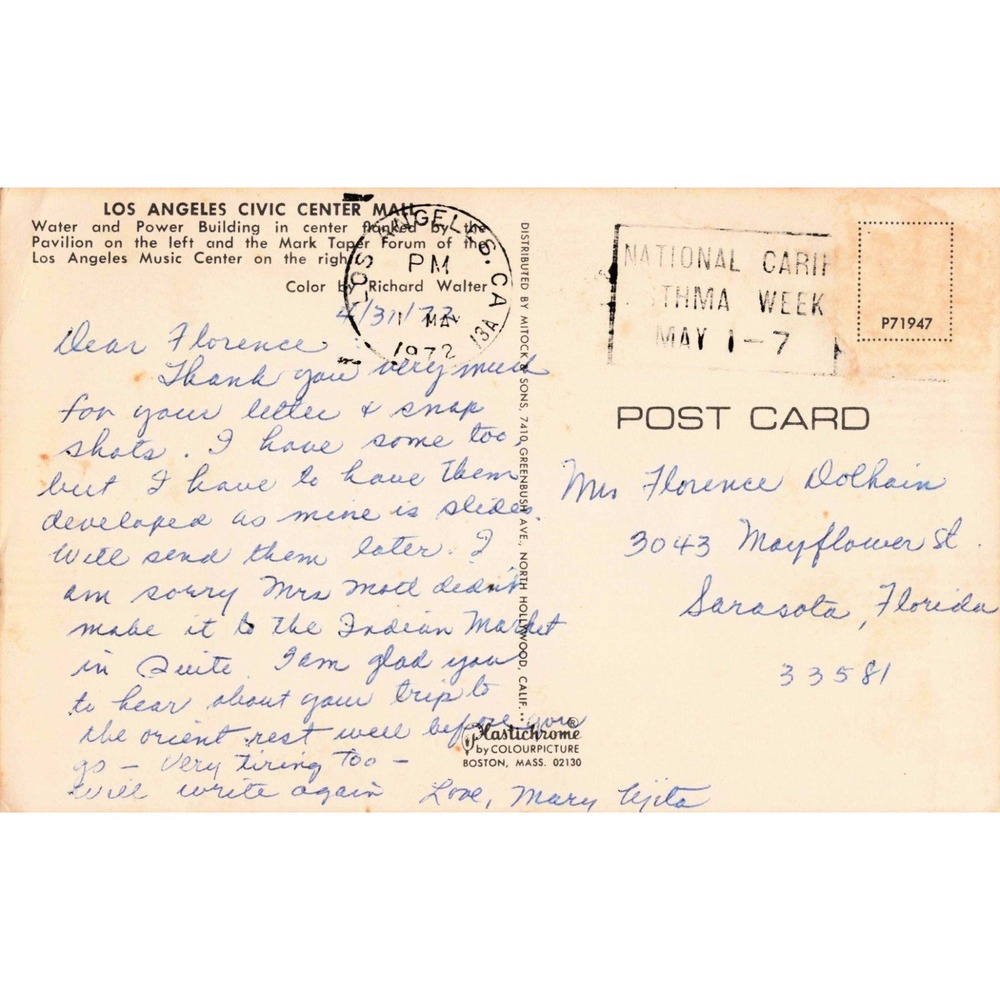 LOS ANGELES CIVIC CENTER MALL
Water and Power Building in center flanked by the
Pavilion on the left and the Mark Taper Forum of the
Los Angeles Music Center on the right
Color by Richard Walter
LOS ANGELES, CA
PM
1 MAY
1972
13A
4/31/72
Dear Florence
Thank you very much
for your letter & snap
shots. I have some too,
but I have to have them
developed as mine is slides.
Will send them later. I
am sorry Mrs Matl didn't
make it to the Indian Market
in Quito. I am glad you
to hear about your trip to
the orient. rest well before you
go – Very tiring too –
will write again Love, Mary
DISTRIBUTED BY MITOCK & SONS, 7410 GREENBUSH AVE., NORTH HOLLYWOOD, CALIF.
Plastichrome®
by COLOURPICTURE
BOSTON, MASS. 02130
NATIONAL
STHMA WEEK
MAY 1-7
P71947
POST CARD
Mrs Florence Dolhain
3043 Mayflower St.
Sarasota, Florida
33581